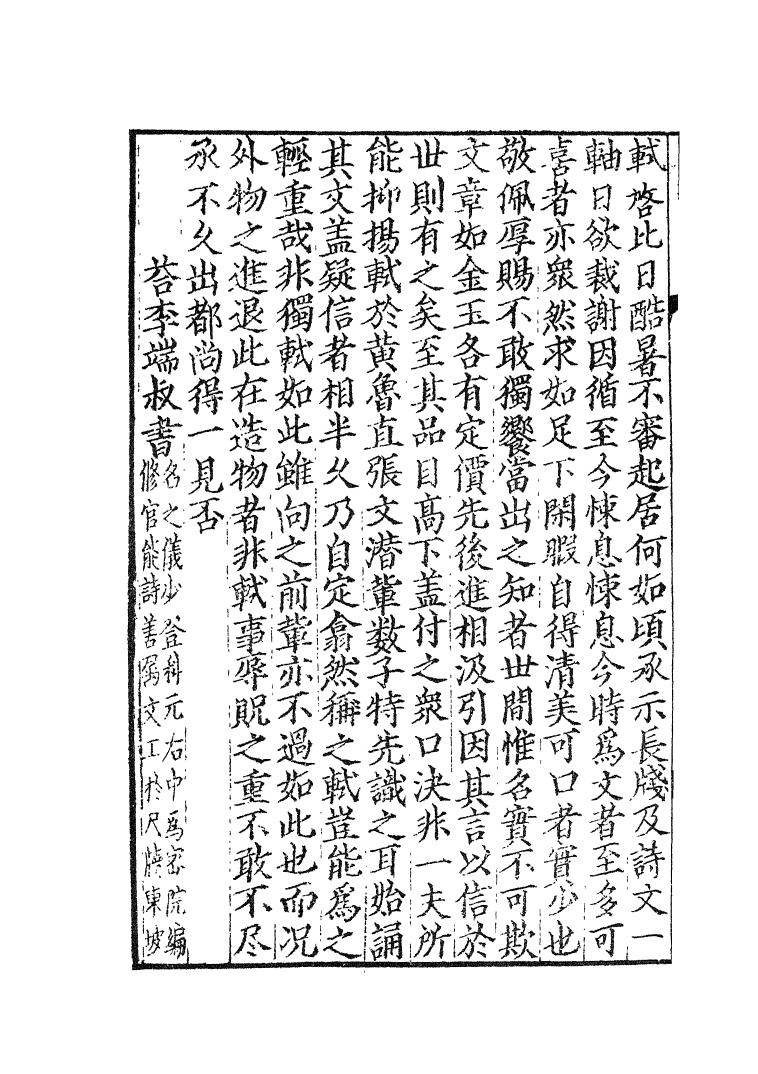 軾啓比日酷暑不審起居何如頃承示長牋及詩文一
軸日欲裁謝因循至今悚息悚息今時爲文者至多可
喜者亦衆然求如足下閑暇自得清美可口者實少也
敬佩厚賜不敢獨饗當出之知者世間惟名實不可欺
文章如金玉各有定價先後進相汲引因其言以信於
世則有之矣至其品目高下盖付之衆口決非一夫所
能抑揚軾於黃魯直張文潛輩数子特先識之耳始誦
其文盖疑信者相半久乃自定翕然稱之軾豈能爲之
輕重哉非獨軾如此雖向之前輩亦不過如此也而况
外物之進退此在造物者非軾事辱貺之重不敢不尽
承不久出都尚得一見否
荅李端叔書
名之儀少登科元右中爲密院編
修官能詩善属文工於尺牘東坡